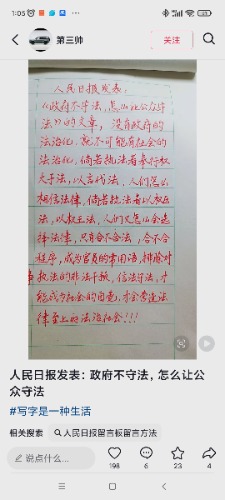 1:05
第三帅
关注
人民日报发表:
《政府不守法,怎么让公众守
法》的文章,没有政府的
法治化,就不可能有社会的
法治化,倘若执法者奉行权
大于法,以言代法,人们怎么
相信法律,倘若执法者以权压
法,以权王法,人们又怎么会选
择法律,只有合不合法,合不合
程序,成为官员的常用语,排除对
执法的非法干预,信法守法,才
能成为社会的自觉,才会营造法
律至上的法治社会!!!
人民日报发表:政府不守法,怎么让公
众守法
#写字是一种生活
相关搜索
人民日报留言板留言方法
说点什么...
198
6
23
4